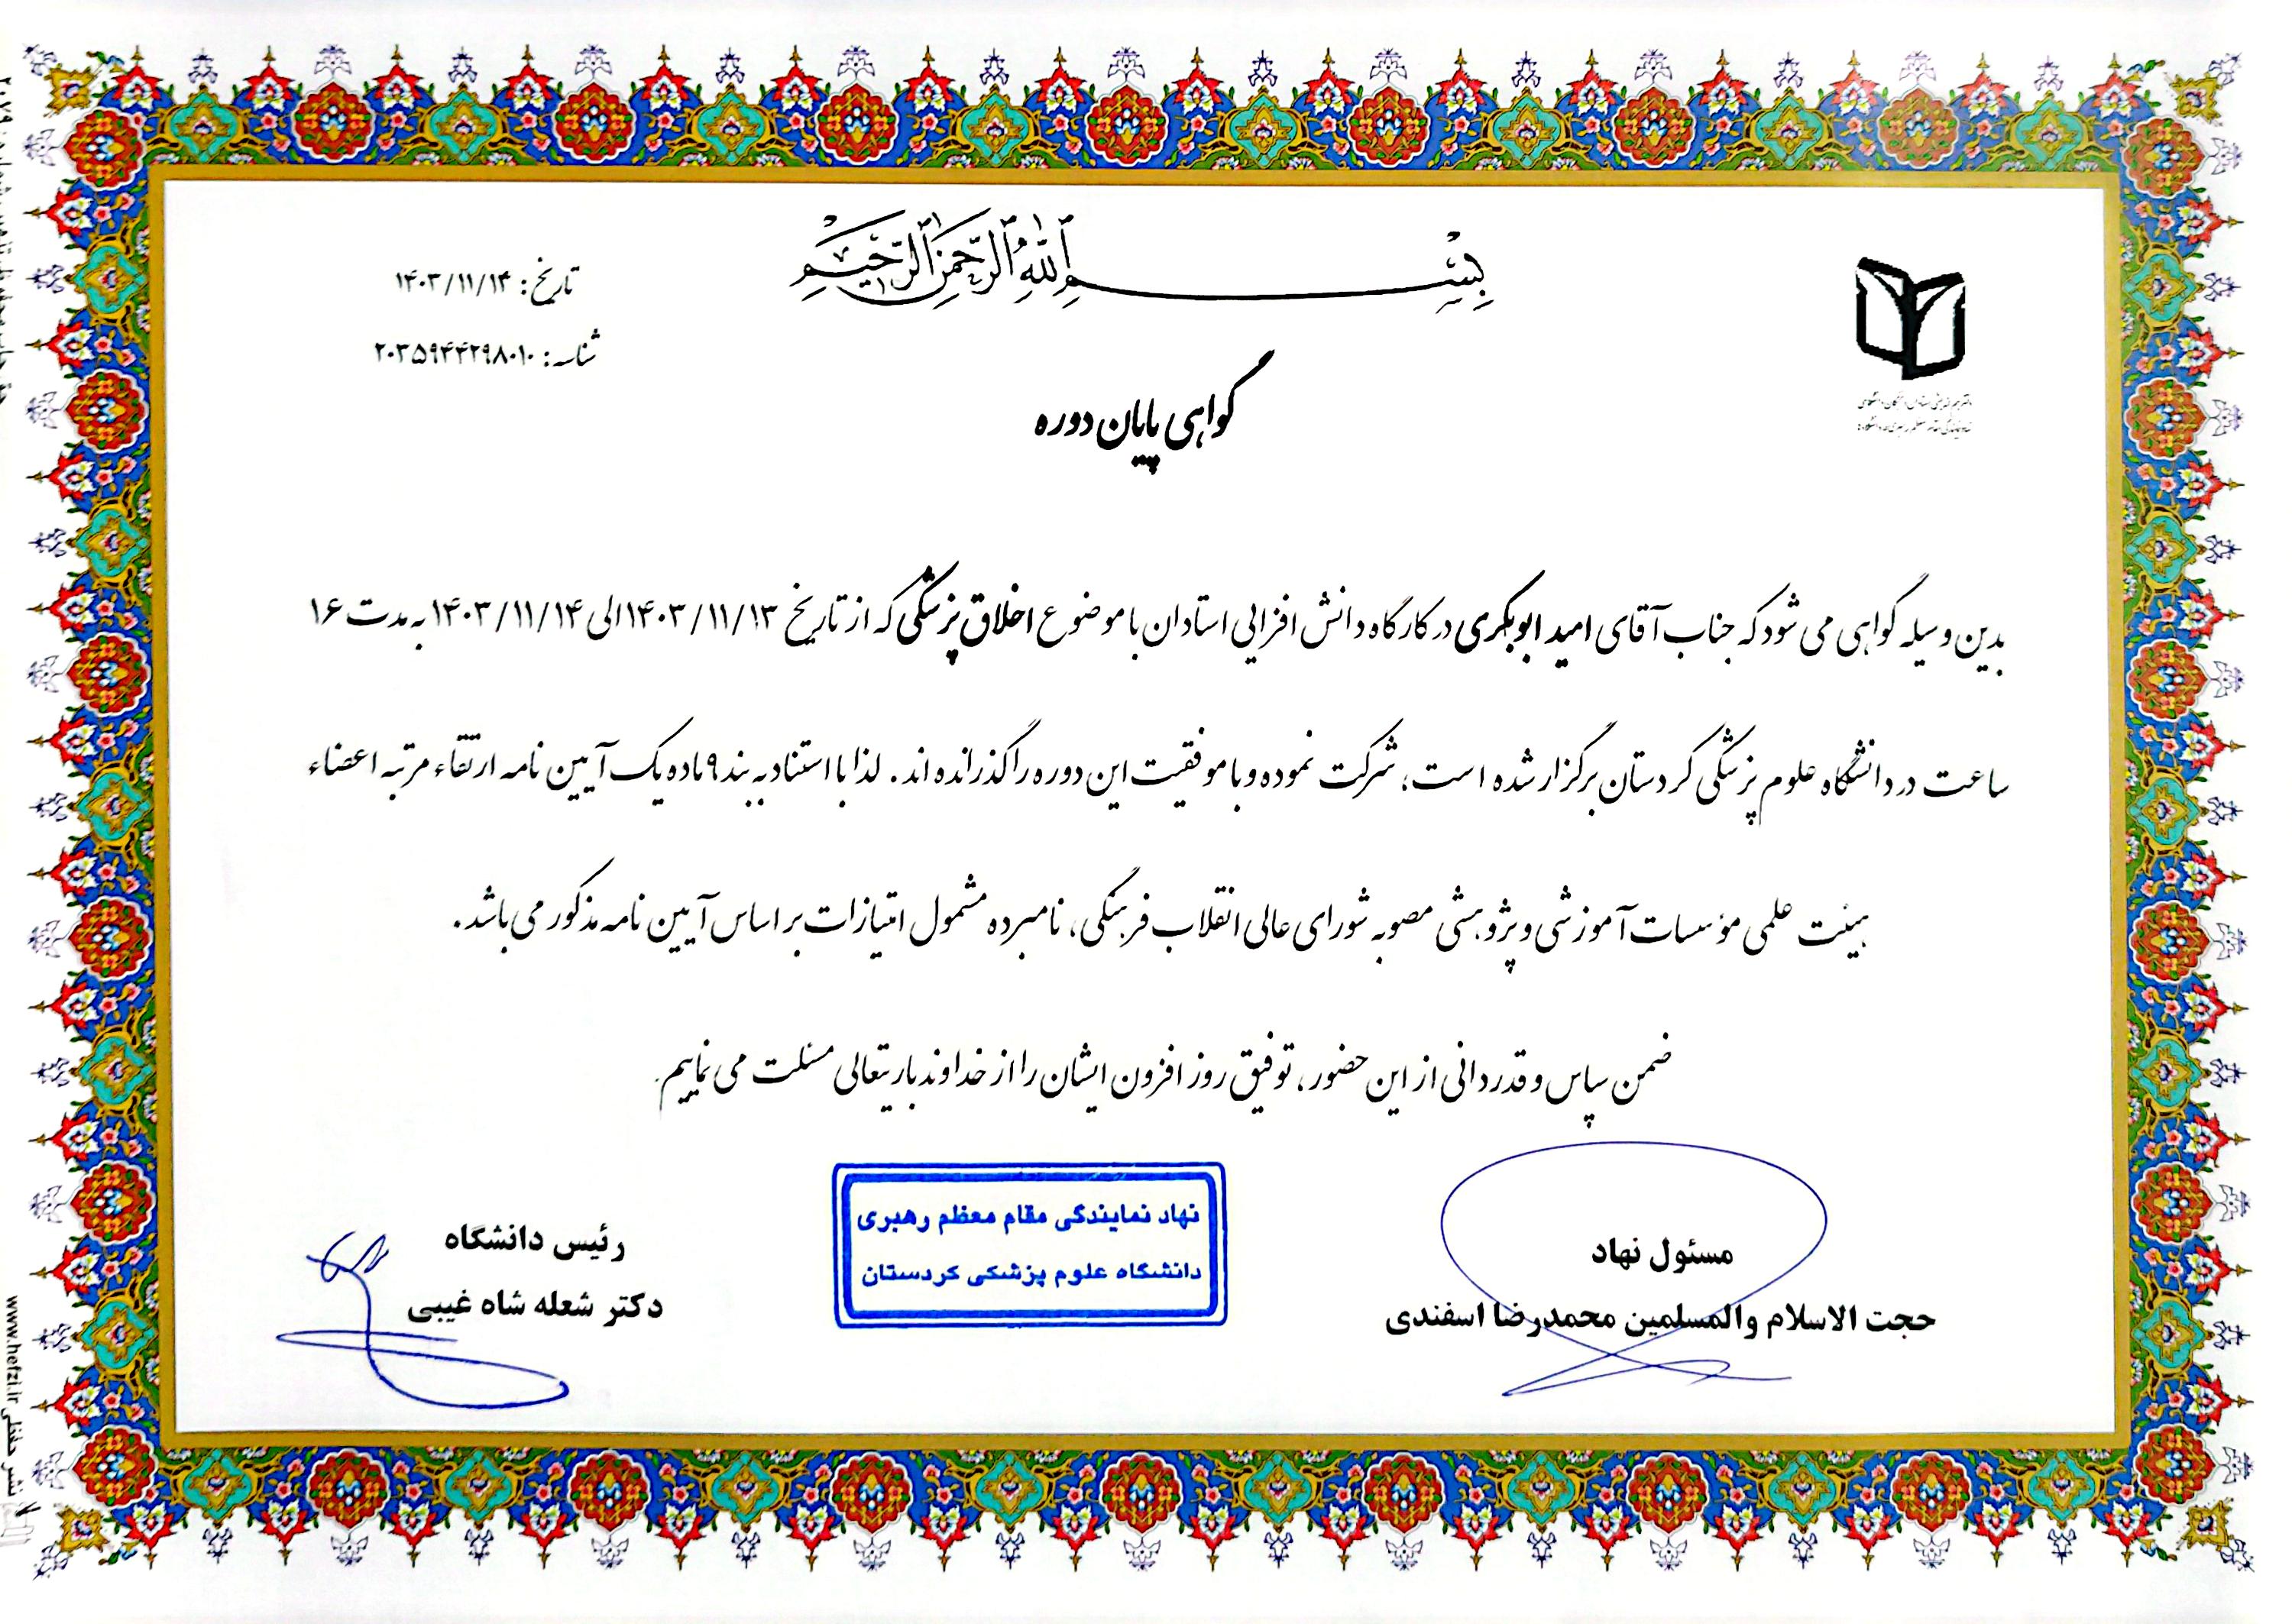 بسم الله الرحمن الرحیم
تاریخ: ۱۴۰۳/۱۱/۱۴
شناسه: ۲۰۳۵۹۴۴۲۹۸۰۱۰
گواهی پایان دوره
بدین وسیله گواهی می شود که جناب آقای امید ابوبکری در کارگاه دانش افزایی استادان با موضوع اخلاق پزشکی که از تاریخ ۱۴۰۳/۱۱/۱۳ الی ۱۴۰۳/۱۱/۱۴ به مدت ۱۶
ساعت در دانشگاه علوم پزشکی کردستان برگزار شده است، شرکت نموده و با موفقیت این دوره را گذرانده اند. لذا با استناد به بند ۹ ماده یک آیین نامه ارتقاء مرتبه اعضاء
هیئت علمی مؤسسات آموزشی و پژوهشی مصوبه شورای عالی انقلاب فرهنگی، نامبرده مشمول امتیازات بر اساس آیین نامه مذکور می باشد.
ضمن سپاس و قدردانی از این حضور، توفیق روز افزون ایشان را از خداوند باریتعالی مسئلت می نماییم.
مسئول نهاد
حجت الاسلام والمسلمین محمدرضا اسفندی
نهاد نمایندگی مقام معظم رهبری
دانشگاه علوم پزشکی کردستان
رئیس دانشگاه
دکتر شعله شاه غیبی
نشر حفظی www.hefzi.ir